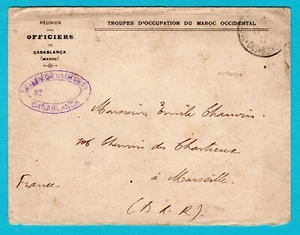 RÉUNION
DES
OFFICIERS
DE
CASABLANCA
(MAROC)
TROUPES D'OCCUPATION DU MAROC OCCIDENTAL
CASABLANCA
Monsieur Emile Chauvin
106 Chemin des Chartreux
à Marseille
France
(B. d. R.)